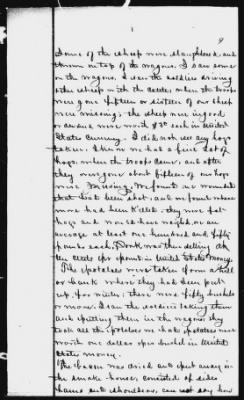 9
Some of the sheep were slaughtered and
thrown on top of the wagons. I saw some
on the wagons. I saw the soldiers driving
other sheep with the cattle when the troops
were gone fifteen or sixteen of our sheep
were missing; the sheep were in good
order and were worth $3.00 each in United
States Currency. I did not see any hogs
taken. I know we had a fine lot of
hogs when the troops came, and after
they were gone about fifteen of our hogs
were missing. We found one wounded
that had been shot, and we found where
more had been killed. They were fat
hogs and would have weighed on an
average at least one hundred and fifty
pounds each. Pork was then selling at
ten cents per pound in United States money.
The potatoes were taken from a hill
or bank where they had been put
up for winter; there were fifty bushels
or more. I saw the soldiers taking them
and putting them in the wagons. They
took all the potatoes we had. potatoes were
worth one dollar per bushel in United
States money.
The bacon was dried and put away in
the smoke house, consisted of sides
hams and shoulders, can not say how